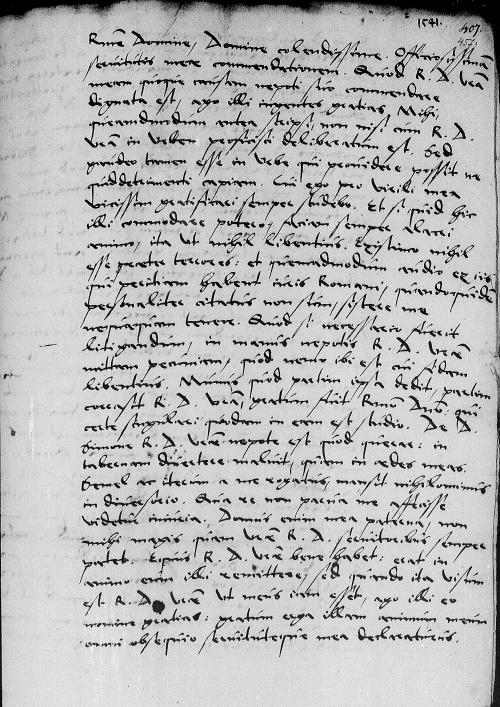 1541.
407.
Rme Domine, Domine colendissime. Officiosissimam
servitutis meae commendationem. Quod R. D. Vra
meam quoque causam nepoti suo commendare
dignata est, ago illi ingentes gratias. Mihi,
quemadmodum antea scripsi, non nisi cum R. D.
Vra in Urbem proficisci deliberatum est. Sed
gaudeo tamen esse in Urbe, qui providere possit ne
quid detrimenti capiam. Cui ego pro virili mea
vicissim gratificari semper studebo. Et si quid hic
illi commodare potero, faciam semper alacri
animo, ita ut nihil libentius. Existimo nihil
esse praeter terrores: et quemadmodum audio ex iis
qui peritiam habent iuris Romani, quandoquidem
personaliter citatus non sum, sistere me
nequaquam tenere. Quod si necessario fuerit
litigandum, in manus nepotis R. D. Vrae
mittam pecuniam, quod nemo ibi est cui fidam
libentius. Munus quod partim ipsa dedit, partim
R. D. Vra, gratum fuit Rmo Dno, qui
certe singulari quodam in eam est studio. De D.
Simone R. D. Vrae nepote est quod querar: in
tabernam divertere maluit, quam in aedes meas.
Semel ac iterum a me rogatus, mansit nihilominus
in diversorio. Qua re non parva me affecisse
videtur iniuria. Domus enim mea paterna, non
mihi magis quam Vrae R. D. servitoribus semper
patet. Equus R. D. Vrae bene habet: erat in
animo eum illi remittere, sed quando ita visum
est R. D. Vrae ut meus iam esset, ago illi eo
nomine gratias: gratum erga illam animum meum
omni obsequio servituteque mea declaraturus.